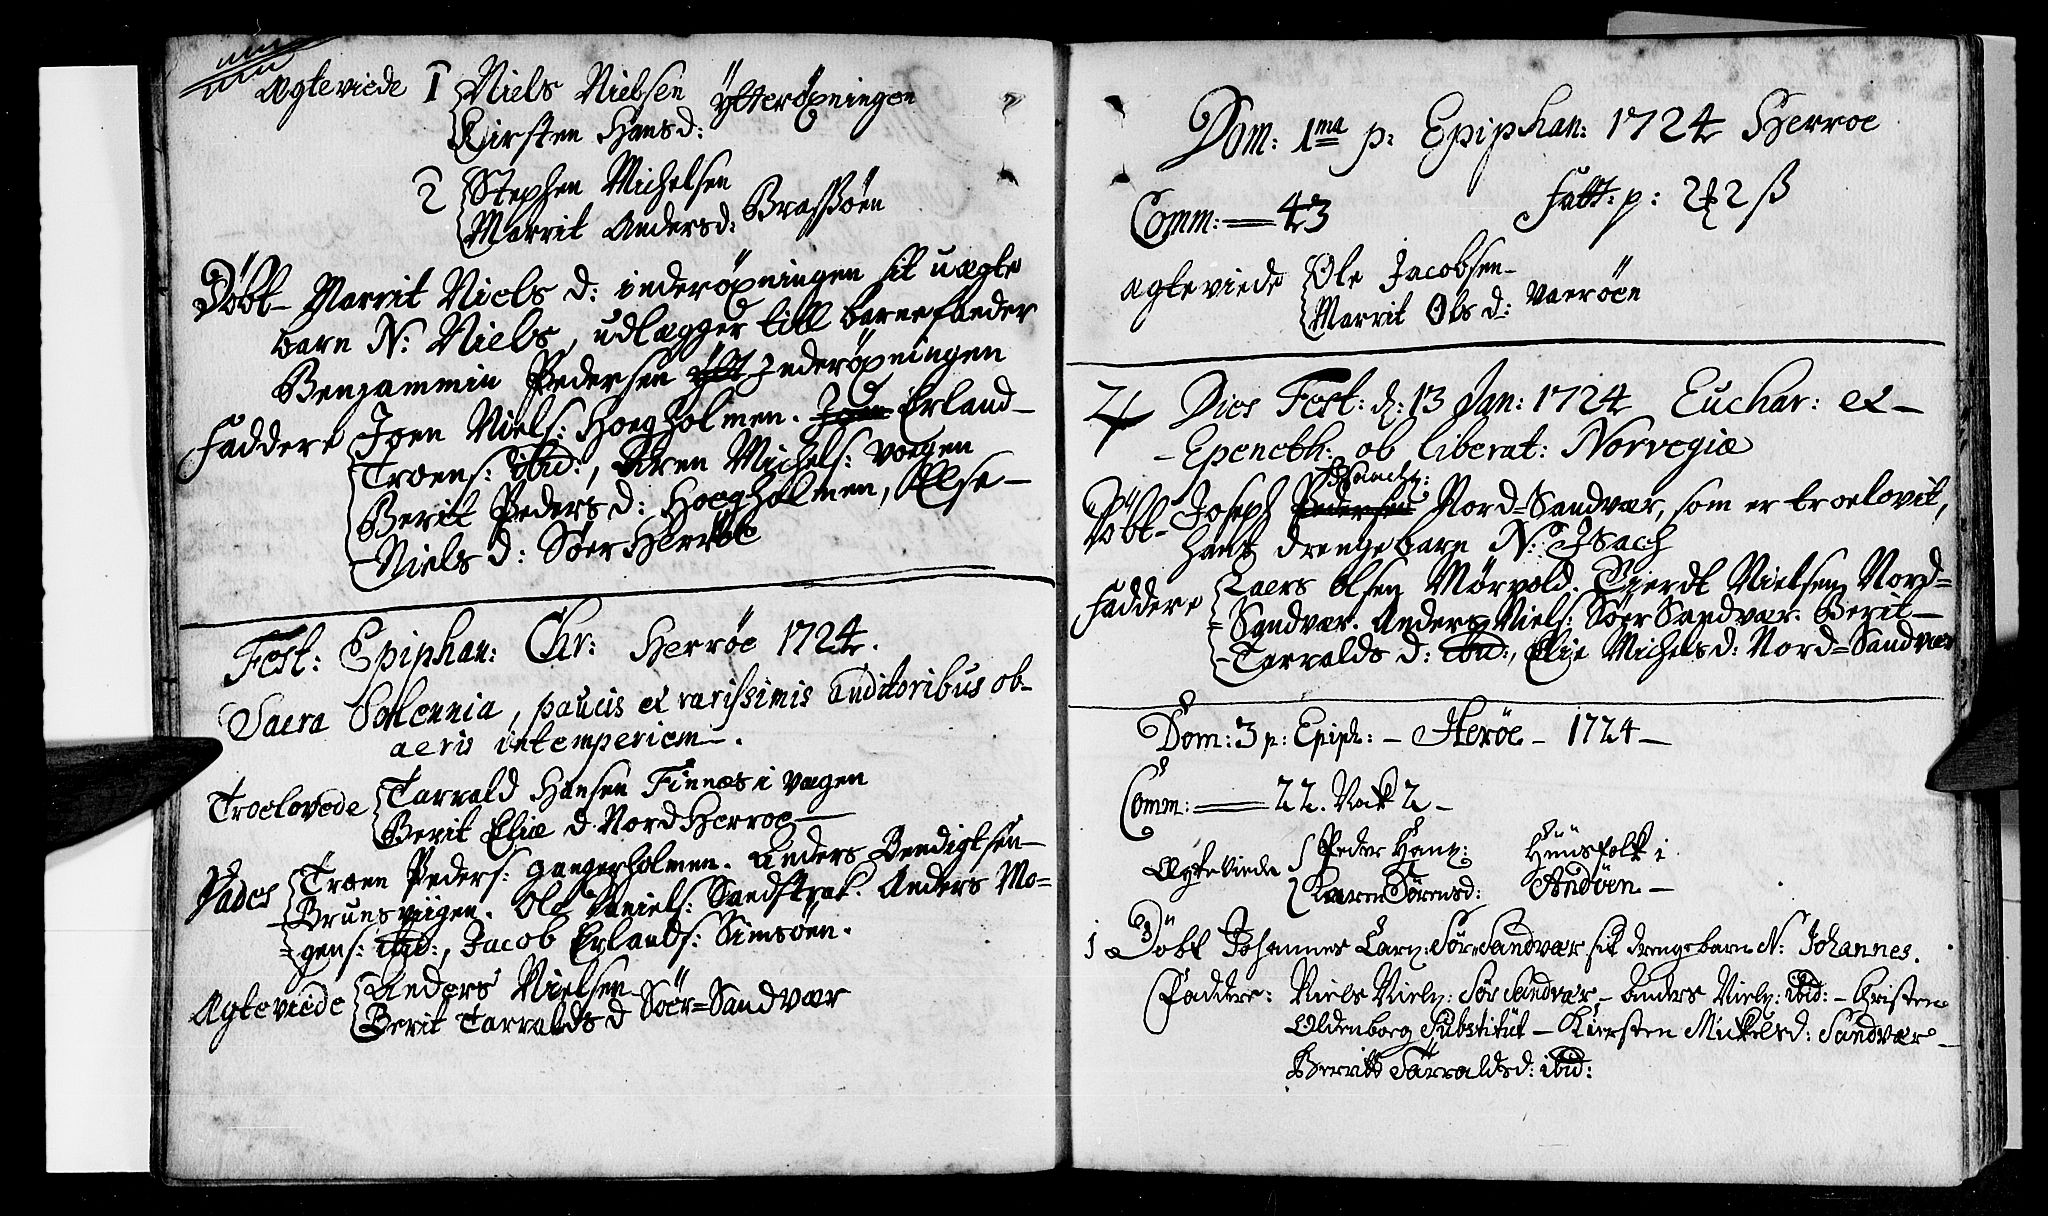 Ægteviede 1 Niels Nielsen Ÿtterøpningen
Kirsten Hansd:
2 Stephen Michelsen
Marrit Andersd: Brassøen
Döbt Marrit Niels d: inderøpningen sit uægte
barn N: Niels, udlægger till barnefaeder
Bengammin Pedersen Inderøpningen
Faddere Joen Niels: Hoegholmen. Erland
Troens: ibid:, Karen Michels: vogen
Berit Peders d: Hoegholmen, Else
Niels d: Søer Herrøe
Fest: Epiphan: Chr: Herröe 1724.
Sacra Solennia, paucis et rarissimis auditoribus ob
aeris intemperiem.
Troelovede Tarvald Hansen Finnæs i vogen
Berit Eliæ d Nord Herroe
Vades Troen Peders: gangerholmen. Anders Bendigtsen
Brunsviigen. Ole Daniels: Sandstrak. Anders Mo=
gens: ibid:, Jacob Erlands: Simsøen.
Ægteviede Anders Nielsen
Berit Tarvalds d Søer=Sandvær
Dom: 1ma p: Epiphan: 1724 Herroe
Comm: 43 Fatt: p: 2 2 ß
Ægteviede Ole Jacobsen
Marrit Ols d: Vaerøen
4 Dies Fest: d: 13 Jan: 1724 Euchar: et
Epeneth: ob liberat: Norvegiæ
Döbt Joseph Pedersen Nord=Sandvær, som er troelovit,
hans drengebarn N: Isach
Faddere Laers Olsen Mørvold. Tierdt Nielsen Nord=
Sandvær. Anders Niels: Søer Sandvær. Berit
Tarvalds d: ibid:, Elie Michelsd: Nord=Sandvær
Dom: 3 p: Epiph: Herøe 1724
Comm: 22. Nock 2
Ægteviede Peder Hans: Huusfolk i
Karen Sørensd: Andøen
1 Döbt Johannes Lars: Sør Sandvær sit drengebarn N: Johannes.
Faddere: Niels Niels: Sør Sandvær Anders Niels: ibid: Christen
Oldenborg Substitut Kiersten Mickelsd: Sandvær
Berritt Tarvaldsd: ibid: